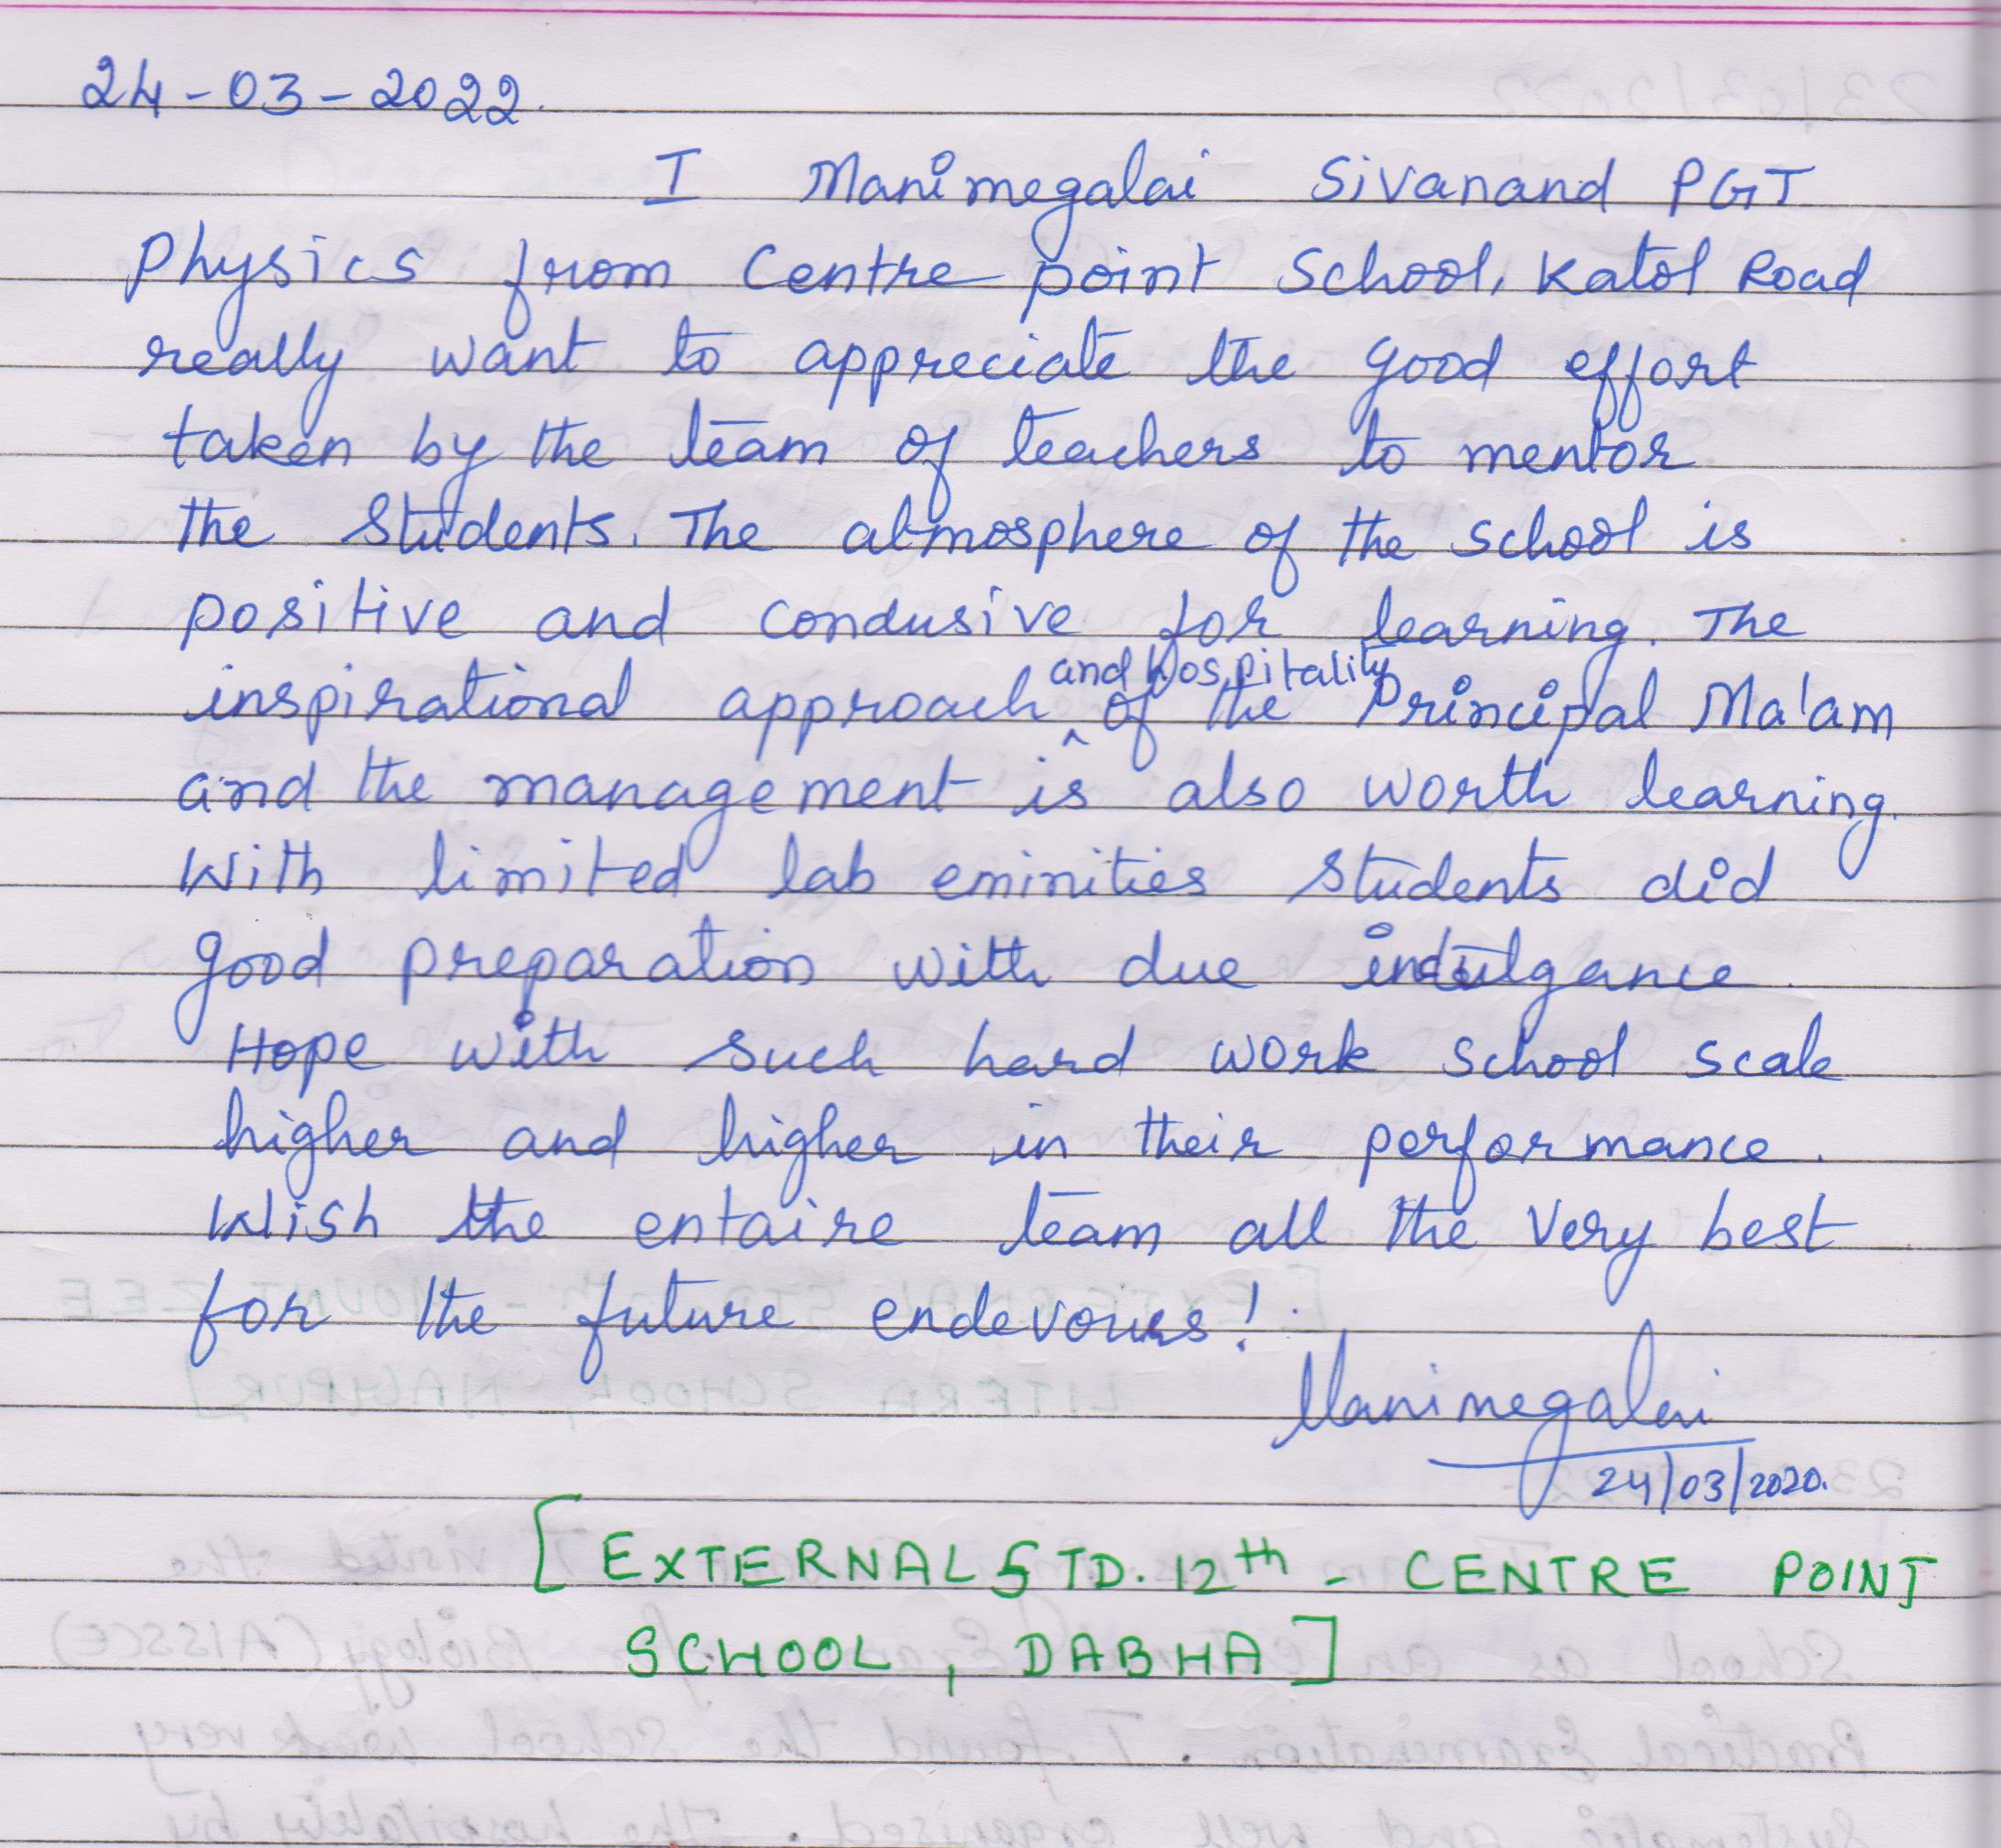 24-03-2022.
I Manimegalai Sivanand PGT
Physics from Centre point School, Katol Road
really want to appreciate the good effort
taken by the team of teachers to mentor
the students. The atmosphere of the school is
positive and condusive for learning. The
inspirational approach ^ and hospitality of the Principal Ma'am
and the management is also worth learning.
With limited lab eminities students did
good preparation with due indulgance.
Hope with such hard work school scale
higher and higher in their performance.
Wish the entaire team all the very best
for the future endevours!
Manimegalai
24/03/2020.
[EXTERNAL STD. 12th - CENTRE POINT
SCHOOL, DABHA]